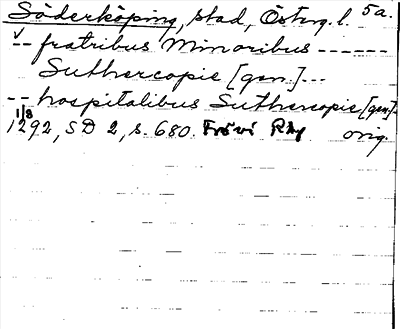 Söderköping, stad, Österg. l. 5a.
-- fratribus Minoribus ------
Suthercopie [gen.]---
-- hospitalibus Suthercopie [gen.]-
1/8
1292, SD 2, s. 680. Frövi Rby orig.